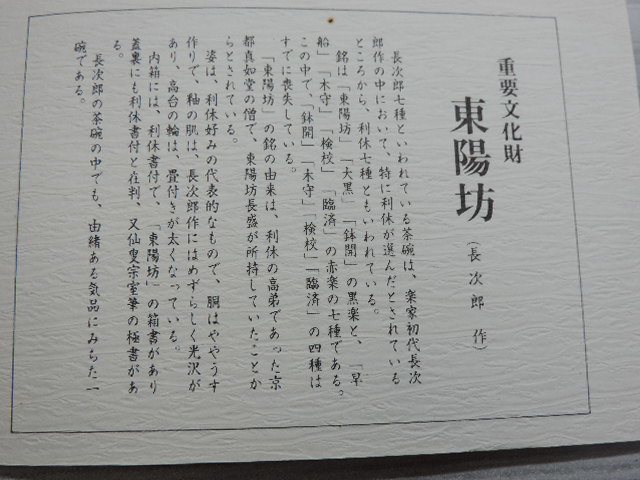 重要文化財
東陽坊
（長次郎 作）
長次郎七種といわれている茶碗は、楽家初代長次
郎作の中において、特に利休が選んだとされている
ところから、利休七種ともいわれている。
銘は「東陽坊」「大黒」「鉢開」の黒楽と、「早
船」「木守」「検校」「臨済」の赤楽の七種である。
この中で、「鉢開」「木守」「検校」「臨済」の四種は
すでに喪失している。
「東陽坊」の銘の由来は、利休の高弟であった京
都真如堂の僧で、東陽坊長盛が所持していたことか
らとされている。
姿は、利休好みの代表的なもので、胴はややうす
作りで、釉の肌は、長次郎作にはめずらしく光沢が
あり、高台の輪は、畳付きが太くなっている。
内箱には、利休書付で、「東陽坊」の箱書があり
蓋裏にも利休書付と在判、又仙叟宗室筆の極書があ
る。
長次郎の茶碗の中でも、由緒ある気品にみちた一
碗である。